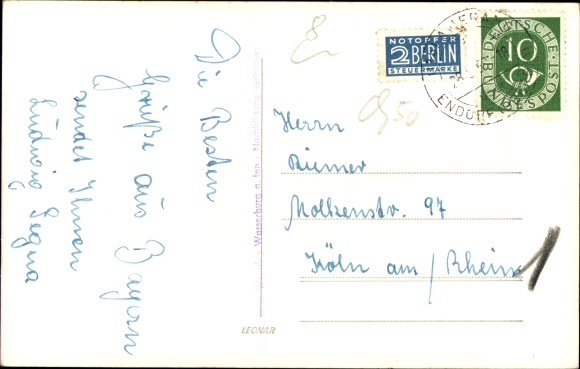 Die Besten
Grüße aus Bayern
sendet Ihnen
Ludwig Segna
Wasserburg a. Inn
LEONAR
NOTOPFER
2 BERLIN
STEUERMARKE
DEUTSCHE
BUNDESPOST
10
ENDORF
Herrn
Riemer
Moltkestr. 97
Köln am / Rhein
1